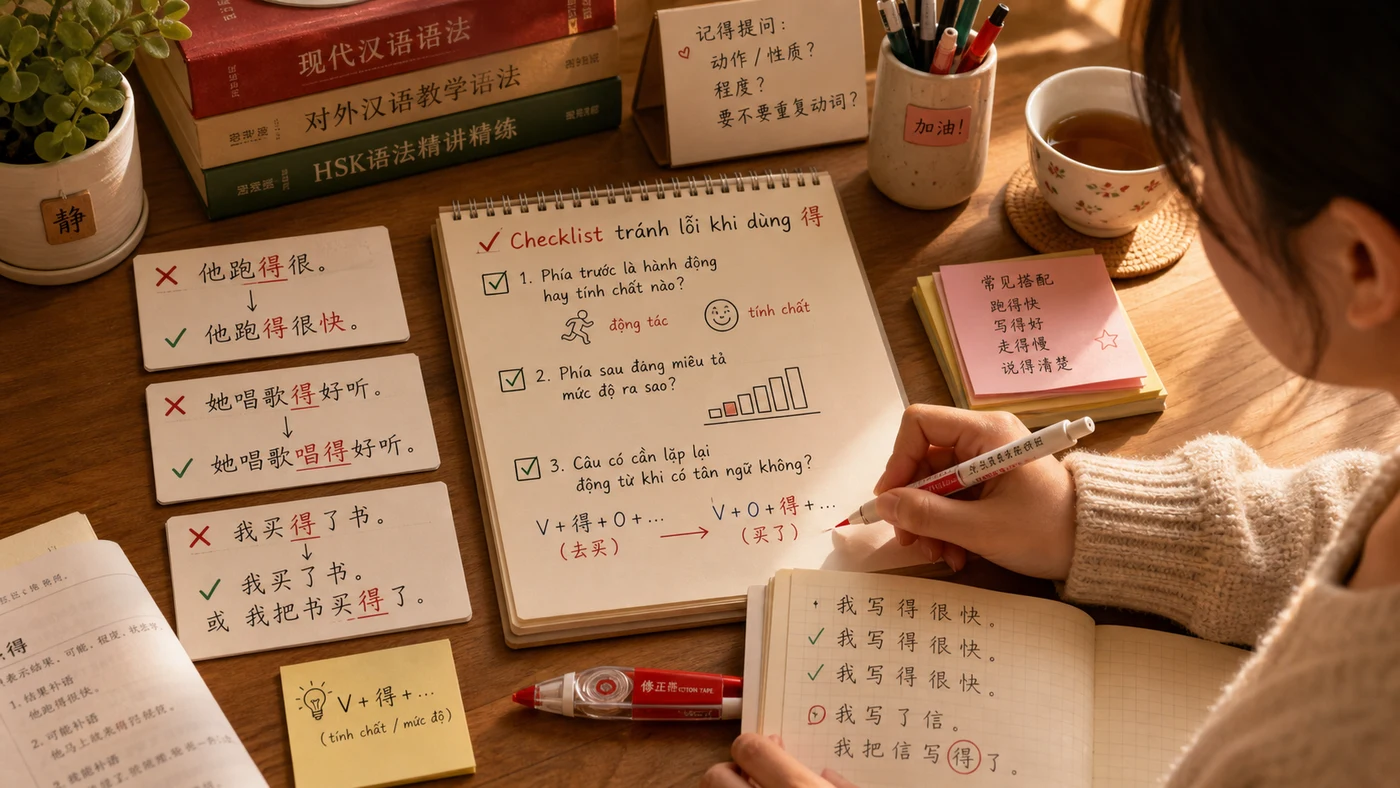 现代汉语语法
对外汉语教学语法
HSK语法精讲精练
静
记得提问：
动作 / 性质？
程度？
要不要重复动词？
加油！
他跑得很。
他跑得很快。
她唱歌得好听。
她唱歌唱得好听。
我买得了书。
我买了书。
或 我把书买得了。
Checklist tránh lỗi khi dùng 得
1. Phía trước là hành động
hay tính chất nào?
động tác
tính chất
2. Phía sau đảng miêu tả
mức độ ra sao?
3. Câu có cần lặp lại
động từ khi có tân ngữ không?
V + 得 + O + ...
V + O + 得 + ...
(去买)
(买了)
常见搭配
跑得快
写得好
走得慢
说得清楚
V + 得 + ...
(tính chất / mức độ)
修正
我写得很快。
我写得很快。
我写得很快。
我写了信。
我把信写得了。
得
1. 结果补语
他跑得很快。
2. 可能补语